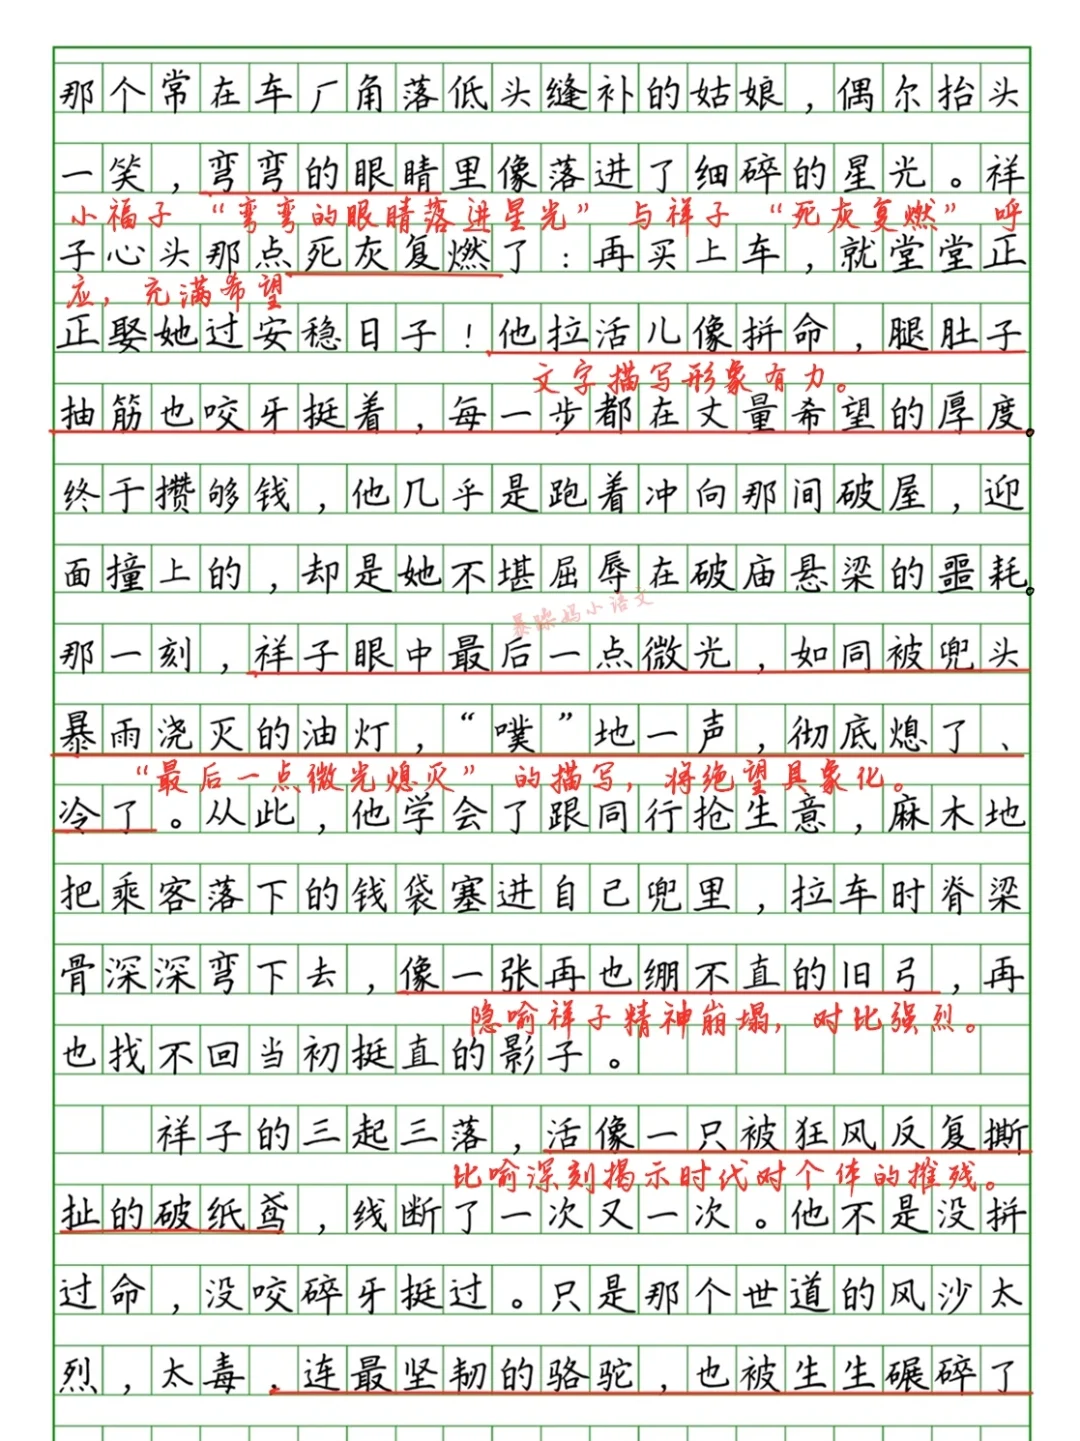 那个常在车厂角落低头缝补的姑娘，偶尔抬头
一笑，弯弯的眼睛里像落进了细碎的星光。祥
小福子“弯弯的眼睛落进星光”与祥子“死灰复燃”呼
子心头那点死灰复燃了：再买上车，就堂堂正
应，充满希望
正娶她过安稳日子！他拉活儿像拼命，腿肚子
文字描写形象有力。
抽筋也咬牙挺着，每一步都在丈量希望的厚度。
终于攒够钱，他几乎是跑着冲向那间破屋，迎
面撞上的，却是她不堪屈辱在破庙悬梁的噩耗。
暴躁妈小语文
那一刻，祥子眼中最后一点微光，如同被兜头
暴雨浇灭的油灯，“噗”地一声，彻底熄了、
“最后一点微光熄灭”的描写，将绝望具象化。
冷了。从此，他学会了跟同行抢生意，麻木地
把乘客落下的钱袋塞进自己兜里，拉车时脊梁
骨深深弯下去，像一张再也绷不直的旧弓，再
隐喻祥子精神崩塌，对比强烈。
也找不回当初挺直的影子。
祥子的三起三落，活像一只被狂风反复撕
比喻深刻揭示时代对个体的摧残。
扯的破纸鸢，线断了一次又一次。他不是没拼
过命，没咬碎牙挺过。只是那个世道的风沙太
烈，太毒，连最坚韧的骆驼，也被生生碾碎了